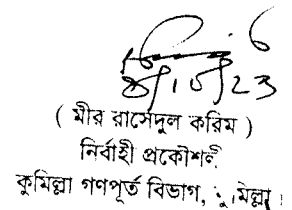 8/10/23
( মীর রাসেদুল করিম )
নির্বাহী প্রকৌশলী
কুমিল্লা গণপূর্ত বিভাগ,